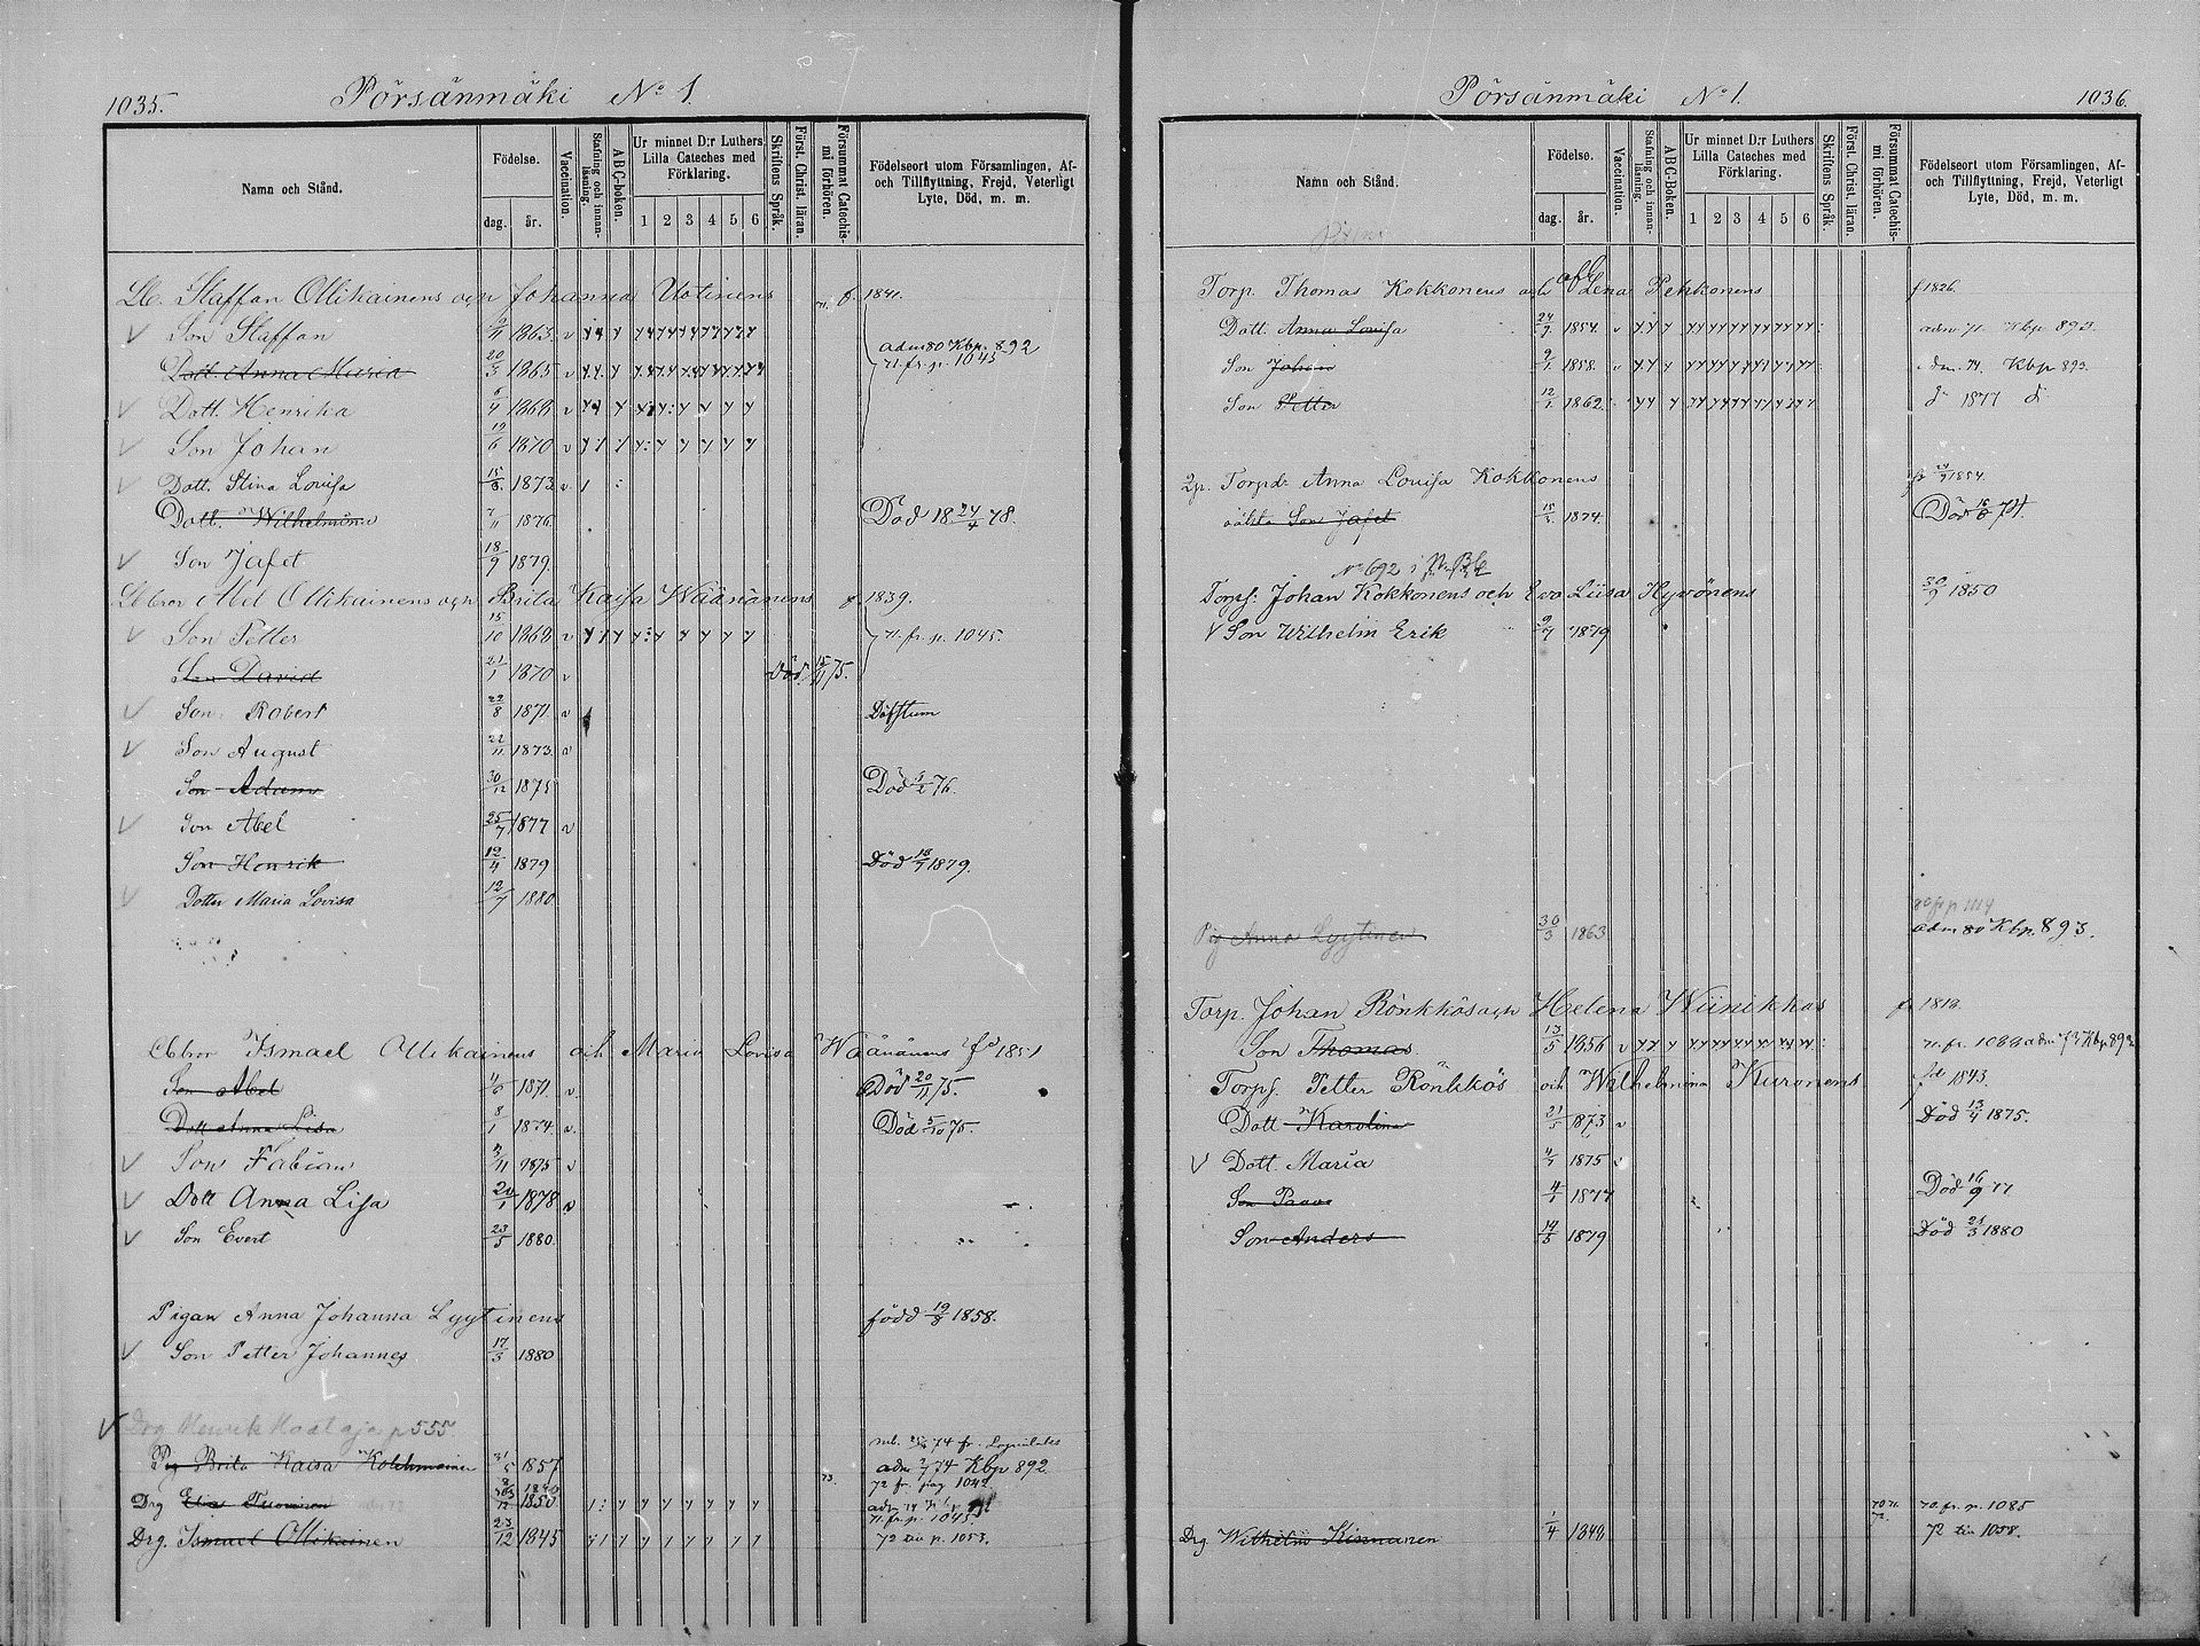 1035.
Pörsänmäki No 1.
Namn och Stånd.
Födelse.
dag.
år.
Vaccination.
Stafning och innan-läsning.
ABC-boken.
Ur minnet D:r Luthers Lilla Cateches med Förklaring.
1 2 3 4 5 6
Skriftens Språk.
Först. Christ. läran.
Försummat Catechis-mi förhören.
Födelseort utom Församlingen, Af- och Tillflyttning, Frejd, Veterligt Lyte, Död, m. m.
Staffan Ollikainens och Johanna Uotinens f. 1841.
Son Staffan 1863 v
Dott. Anna Maria 20/3 1865 v adm 80 Kbp. 892
71. fr. p. 1045
Dott. Henrika 6/4 1868 v
Son Johan 19/6 1870 v
Dott. Stina Lovisa 15/8 1873 v
Dott. Wilhelmina 7/11 1876 Död 18 24/4 78.
Son Jafet 18/9 1879.
Abel Ollikainens och Brita Kaisa Wäänänens f. 1839.
Son Petter 15/10 1868 v 71. fr. p. 1045.
Son David 21/1 1870 v Död 75.
Son Robert 22/8 1871 v Döfstum
Son August 22/11 1873 v
Son Adam 30/12 1875 Död 76.
Son Abel 25/7 1877 v
Son Henrik 12/4 1879 Död 18/7 1879.
Dotter Maria Lovisa 12/7 1880
Ismael Ollikainens och Maria Lovisa Wäänänens fd 1851
Son Abel 1871 v Död 20/11 75.
Dott Anna Lisa 8/1 1874 v Död 5/10 75.
Son Fabian 3/11 1875 v
Dott Anna Lisa 20/1 1878 v
Son Evert 23/5 1880
Pigan Anna Johanna Lyytinens född 19/8 1858.
Son Petter Johannes 17/3 1880
Drg Henrik p 555
Pig Brita Kaisa Kolehmainen 31/5 1857 adm 74 Kbp 892
72 fr. pag 1042
Drg Elias 1850
71. fr. p. 1045
Drg. Ismael Ollikainen 23/12 1845 72 till p. 1053.
Pörsänmäki No 1.
1036.
Namn och Stånd.
Födelse.
dag.
år.
Vaccination.
Stafning och innan-läsning.
ABC-Boken.
Ur minnet D:r Luthers Lilla Cateches med Förklaring.
1 2 3 4 5 6
Skriftens Språk.
Först. Christ. läran.
Försummat Catechis-mi förhören.
Födelseort utom Församlingen, Af- och Tillflyttning, Frejd, Veterligt Lyte, Död, m. m.
Torp. Thomas Kokkonens och Lena Pekkonens f 1826.
Dott. Anna Lovisa 24/9 1854 v adm 71. Kbp. 893.
Son Johan 9/1 1858 adm. 74. Kbp 893.
Son Petter 12/1 1862 do 1877 do
Torpdr Anna Lovisa Kokkonens 1854.
oäkta Son Jafet 1874 Död 74.
No 692 i
Torps: Johan Kokkonens och Eva Liisa Hyvönens 30/9 1850
Son Wilhelm Erik 9/7 1879
Pig Anna Lyytinen 30/3 1863 adm 80 Kbp. 893.
Torp. Johan Rönkkös och Helena Wiinikkas f. 1818
Son Thomas 13/5 1856 v
Torps. Petter Rönkkös och Wilhelmina Kuronens fd 1843.
Dott Karolina 21/5 1873 v Död 13/4 1875.
Dott. Maria 1875
Son Paavo 4/1 1877 Död 16/9 77
Son Anders 1879 Död 1880
Drg Wilhelm Kinnunen 1/4 1848 70. fr. p. 1085
72 till 1058.